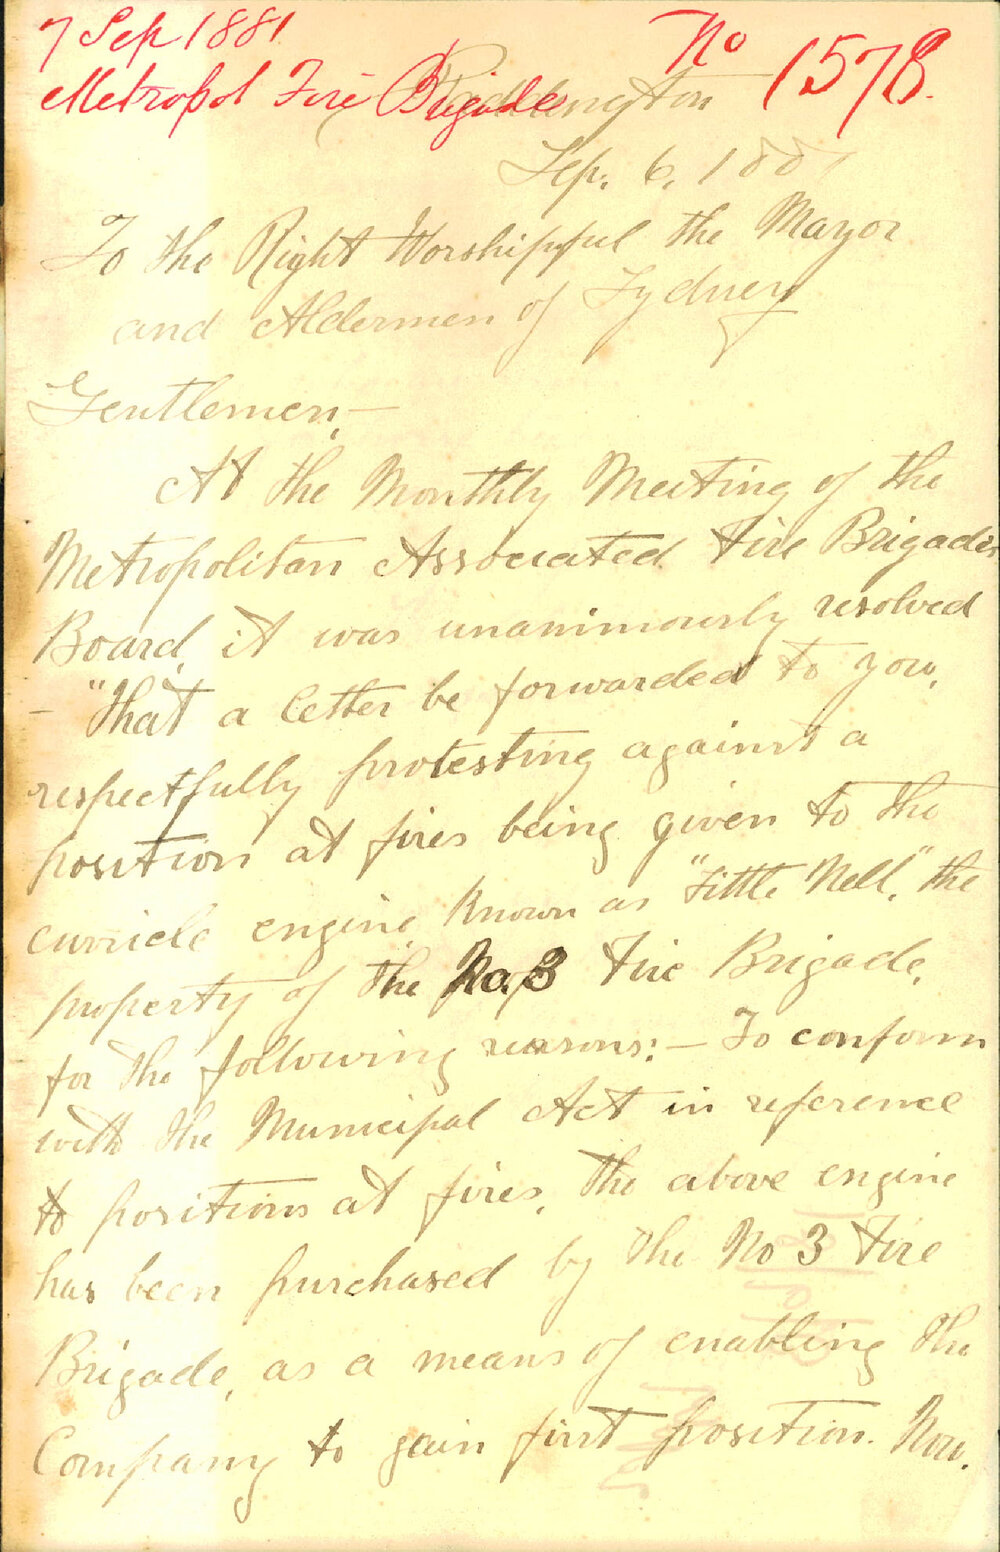 7 Sep 1881
No 1578.
Metropol Fire Brigade
Paddington
Sep. 6, 1881
To the Right Worshipful the Mayor
and Aldermen of Sydney
Gentlemen,—
At the Monthly Meeting of the
Metropolitan Associated Fire Brigades
Board, it was unanimously resolved
– "That a letter be forwarded to you,
respectfully protesting against a
position at fires being given to the
curricle engine known as "Little Nell," the
property of the No. 3 Fire Brigade,
for the following reasons:— To conform
with the Municipal Act in reference
to positions at fires, the above engine
has been purchased by the No 3 Fire
Brigade, as a means of enabling the
Company to gain first position. Now,